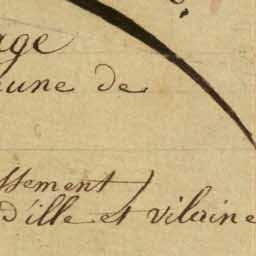 age
une de
ssement)
d'ille et vilaine